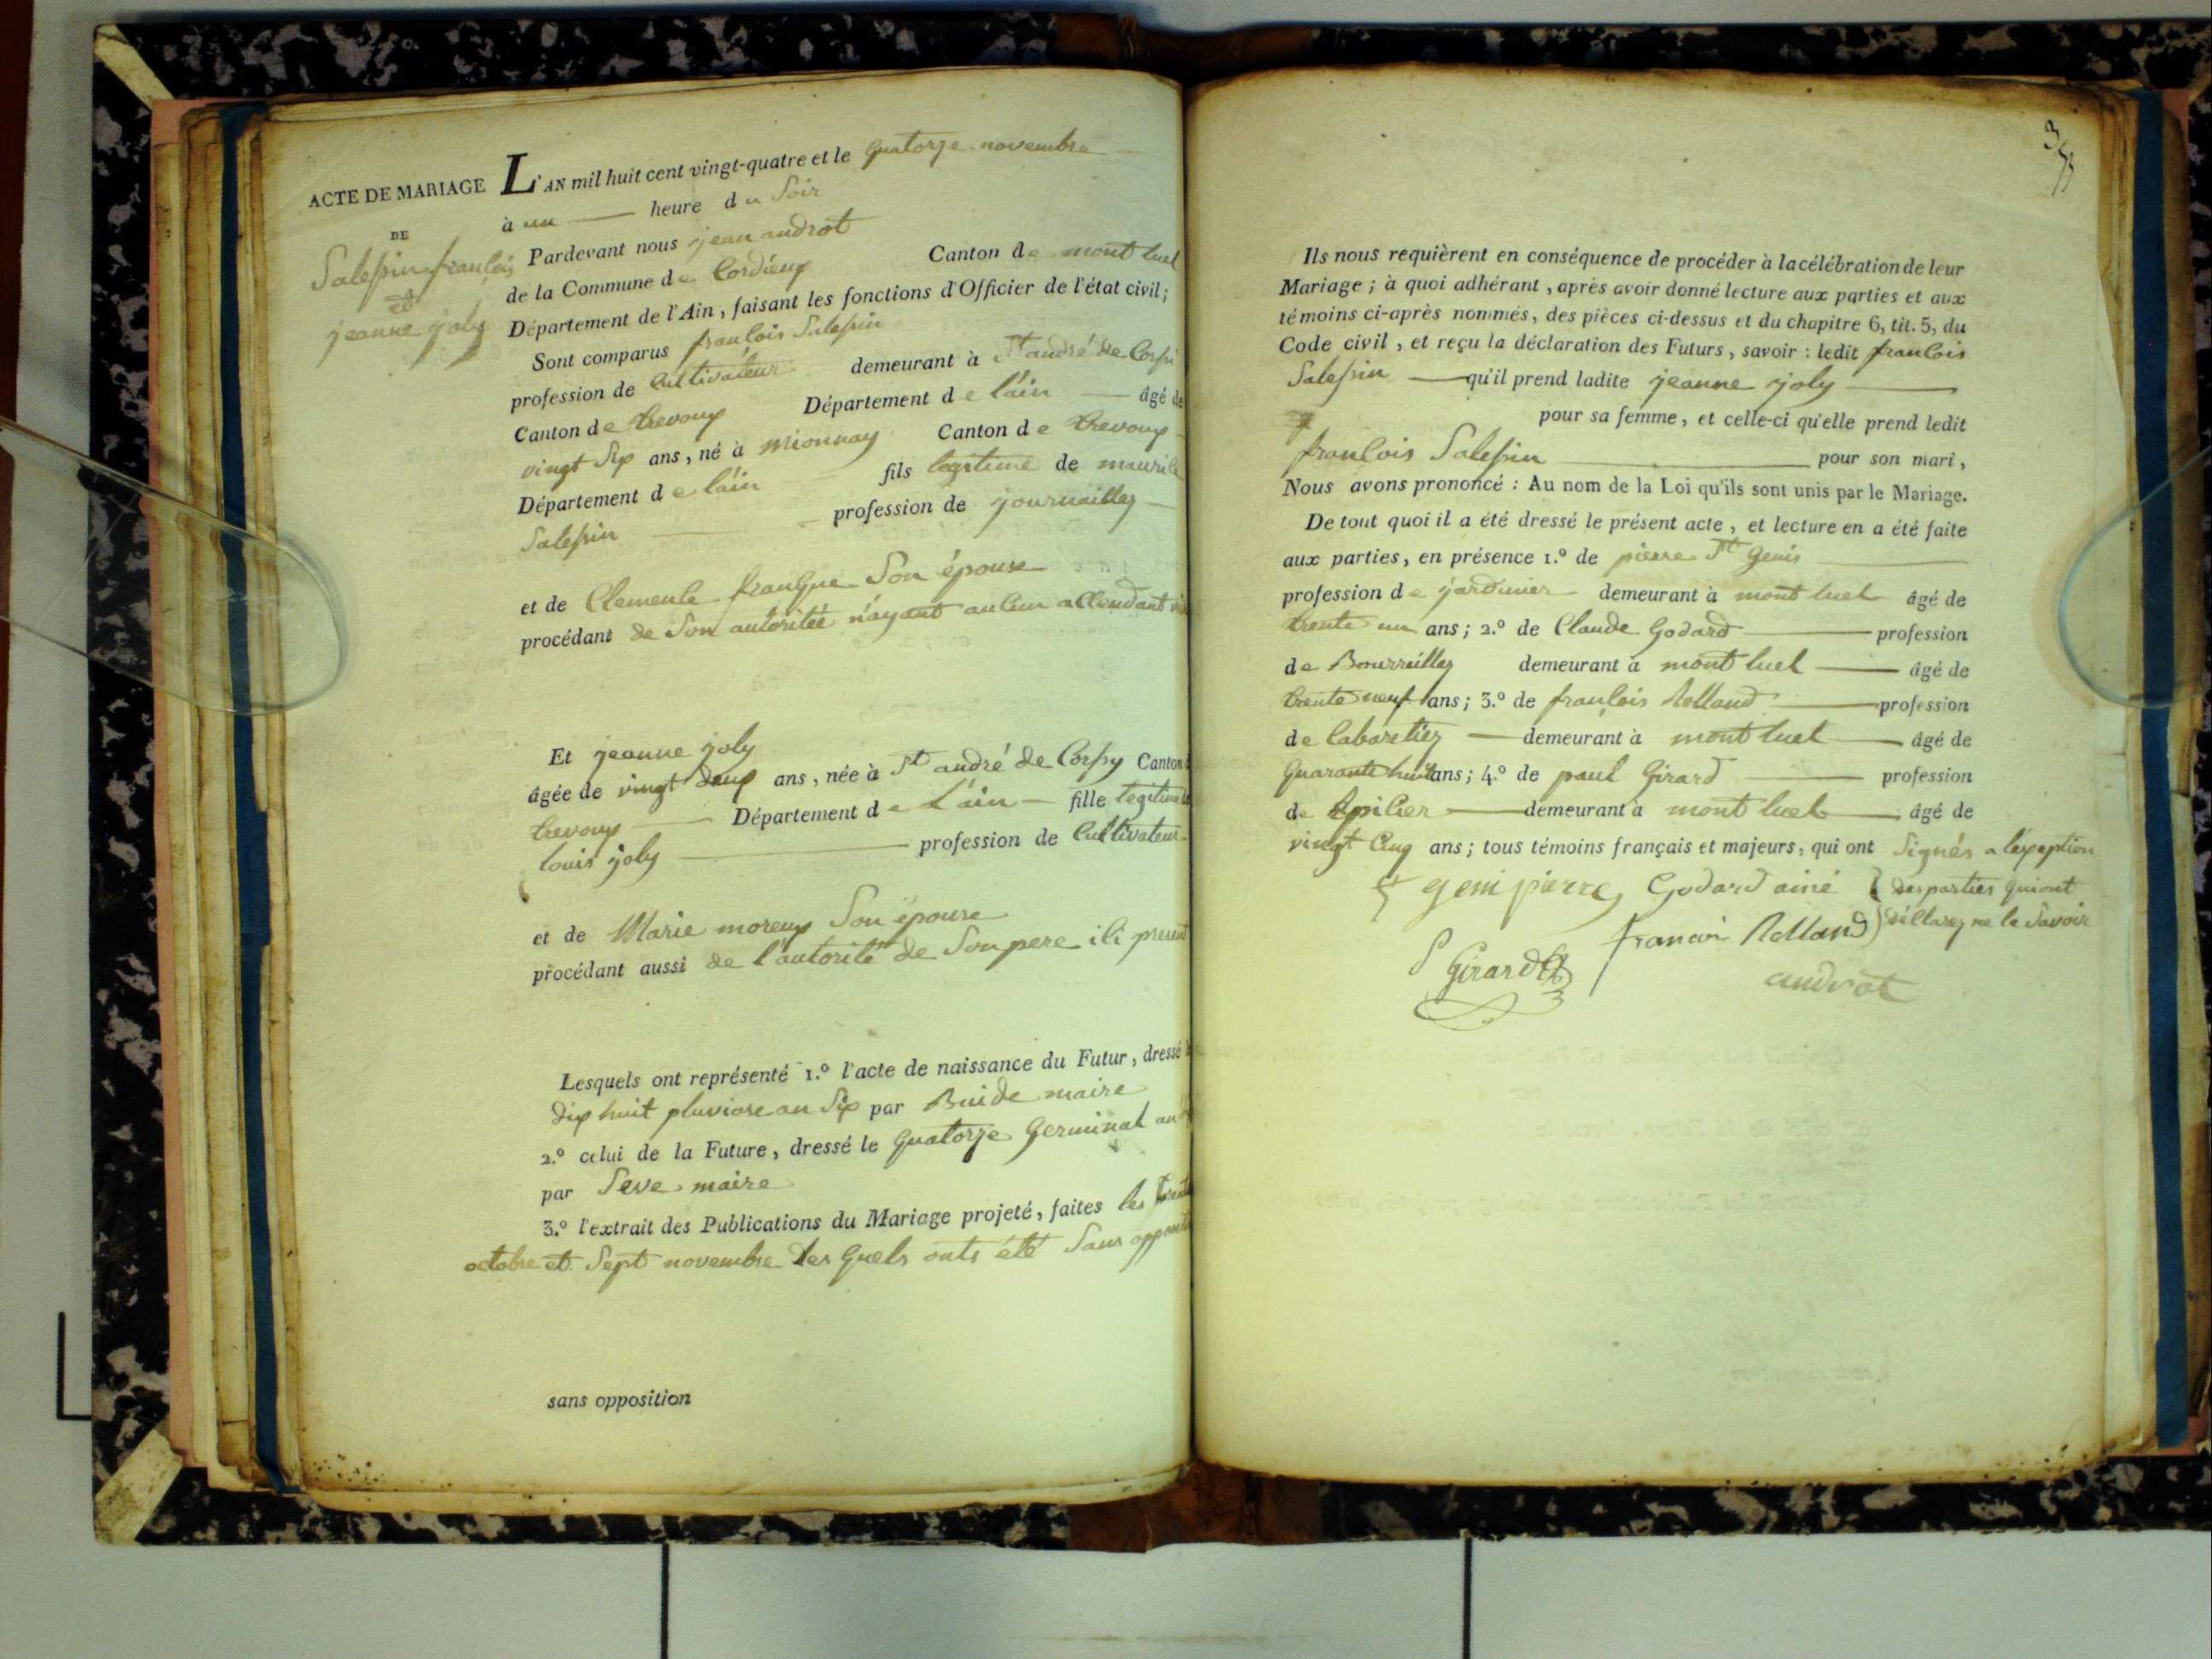 ACTE DE MARIAGE
DE
Salessin françois
et
jeanne joly
L'AN mil huit cent vingt-quatre et le quatorze novembre
à un heure du Soir
Pardevant nous jean androt
de la Commune de Cordieux Canton de mont luel
Département de l'Ain, faisant les fonctions d'Officier de l'état civil;
Sont comparus françois Salessin
profession de Cultivateur demeurant à St andré de Corsi
Canton de trevoux Département de l'ain âgé de
vingt Six ans, né à mionnay Canton de trevoux
Département de l'ain fils legitime de
Salessin profession de journaillez
et de Clemence Son épouse
procédant de Son autoritée n'ayant aucun
Et jeanne joly
âgée de vingt deux ans, née à St andré de Corsy Canton
trevoux Département de L'ain fille legitime
louis joly profession de Cultivateur
et de Marie moreux Son épouse
procédant aussi de l'autorité de Son pere ici present
Lesquels ont représenté 1.º l'acte de naissance du Futur, dressé
dix huit pluviose an Six par Buide maire
2.º celui de la Future, dressé le quatorze Germinal an
par Seve maire
3.º l'extrait des Publications du Mariage projeté, faites les trente
octobre et Sept novembre les quels onts été Sans
sans opposition
Ils nous requièrent en conséquence de procéder à la célébration de leur
Mariage; à quoi adhérant, après avoir donné lecture aux parties et aux
témoins ci-après nommés, des pièces ci-dessus et du chapitre 6, tit. 5, du
Code civil, et reçu la déclaration des Futurs, savoir: ledit francois
Salessin qu'il prend ladite jeanne joly
pour sa femme, et celle-ci qu'elle prend ledit
francois Salessin pour son mari,
Nous avons prononcé: Au nom de la Loi qu'ils sont unis par le Mariage.
De tout quoi il a été dressé le présent acte, et lecture en a été faite
aux parties, en présence 1.º de pierre St Genis
profession de jardinier demeurant à mont luel âgé de
trente un ans; 2.º de Claude Godard profession
de Bourreillez demeurant à mont luel âgé de
trente neuf ans; 3.º de françois Rolland profession
de Cabaretiez demeurant à mont luel âgé de
quarante huit ans; 4.º de paul Girard profession
de Epicier demeurant à mont luel âgé de
vingt Cinq ans; tous témoins français et majeurs, qui ont Signés a l'exeption
des parties qui ont
déClarez ne le Savoir
St geni pierre Godard ainé
P Girard francoi Rolland
androt